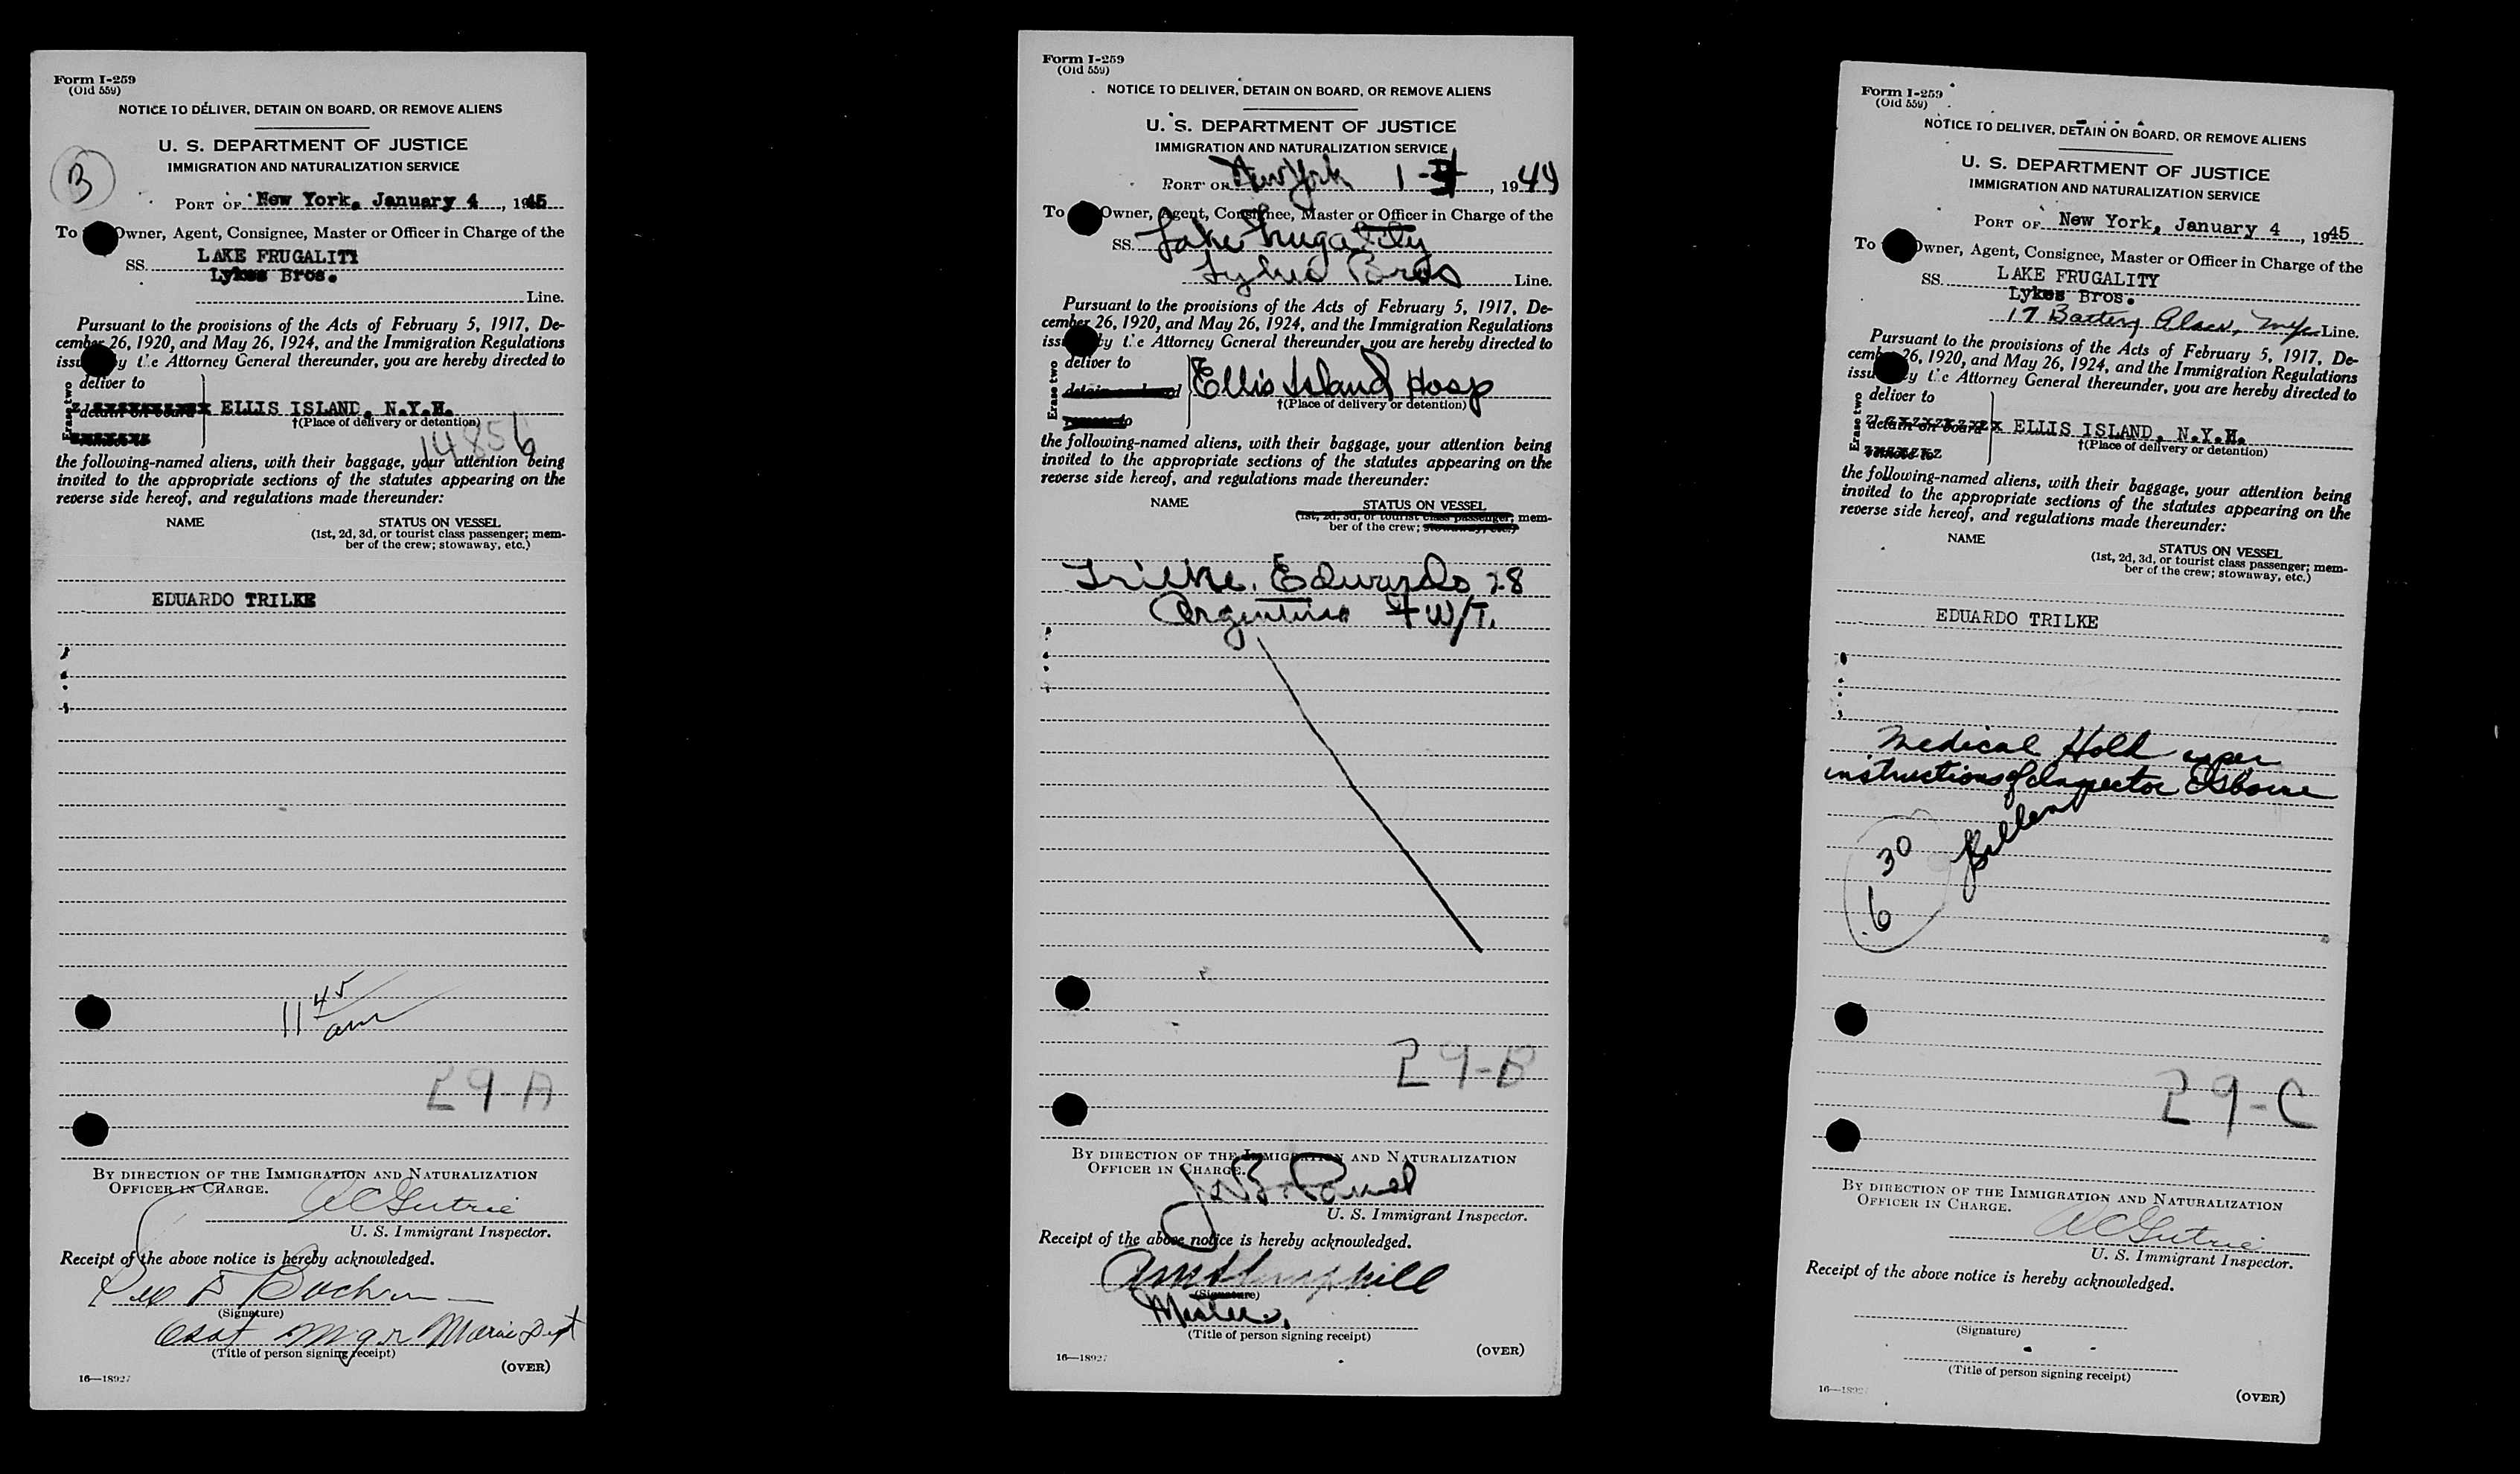 Form I-259
(Old 559)
NOTICE TO DELIVER, DETAIN ON BOARD, OR REMOVE ALIENS
U. S. DEPARTMENT OF JUSTICE
IMMIGRATION AND NATURALIZATION SERVICE
B
PORT OF New York, January 4, 1945
To Owner, Agent, Consignee, Master or Officer in Charge of the
SS. LAKE FRUGALITY
Lykes Bros.
Line.
Pursuant to the provisions of the Acts of February 5, 1917, De-
cember 26, 1920, and May 26, 1924, and the Immigration Regulations
issued by the Attorney General thereunder, you are hereby directed to
Erase two
deliver to
detain on board
ELLIS ISLAND, N.Y.H.
†(Place of delivery or detention)
14856
the following-named aliens, with their baggage, your attention being
invited to the appropriate sections of the statutes appearing on the
reverse side hereof, and regulations made thereunder:
NAME STATUS ON VESSEL
(1st, 2d, 3d, or tourist class passenger; mem-
ber of the crew; stowaway, etc.)
EDUARDO TRILKE
11 45 am
29-A
BY DIRECTION OF THE IMMIGRATION AND NATURALIZATION
OFFICER IN CHARGE.
U. S. Immigrant Inspector.
Receipt of the above notice is hereby acknowledged.
(Signature)
Asst Mgr Marine Dept
(Title of person signing receipt)
(OVER)
16—18927
Form I-259
(Old 559)
NOTICE TO DELIVER, DETAIN ON BOARD, OR REMOVE ALIENS
U. S. DEPARTMENT OF JUSTICE
IMMIGRATION AND NATURALIZATION SERVICE
PORT OF New York 1-4, 1944
To Owner, Agent, Consignee, Master or Officer in Charge of the
SS. Lake Frugality
Lykes Bros Line.
Pursuant to the provisions of the Acts of February 5, 1917, De-
cember 26, 1920, and May 26, 1924, and the Immigration Regulations
issued by the Attorney General thereunder, you are hereby directed to
Erase two
deliver to
detain on board
remove to
Ellis Island Hosp
†(Place of delivery or detention)
the following-named aliens, with their baggage, your attention being
invited to the appropriate sections of the statutes appearing on the
reverse side hereof, and regulations made thereunder:
NAME STATUS ON VESSEL
(1st, 2d, 3d, or tourist class passenger; mem-
ber of the crew; stowaway, etc.)
Trilke, Eduardo 28
Argentina W/T.
29-B
BY DIRECTION OF THE IMMIGRATION AND NATURALIZATION
OFFICER IN CHARGE.
U. S. Immigrant Inspector.
Receipt of the above notice is hereby acknowledged.
(Signature)
Master
(Title of person signing receipt)
(OVER)
16—18927
Form I-259
(Old 559)
NOTICE TO DELIVER, DETAIN ON BOARD, OR REMOVE ALIENS
U. S. DEPARTMENT OF JUSTICE
IMMIGRATION AND NATURALIZATION SERVICE
PORT OF New York, January 4, 1945
To Owner, Agent, Consignee, Master or Officer in Charge of the
SS. LAKE FRUGALITY
Lykes Bros.
17 Battery Place, NYC Line.
Pursuant to the provisions of the Acts of February 5, 1917, De-
cember 26, 1920, and May 26, 1924, and the Immigration Regulations
issued by the Attorney General thereunder, you are hereby directed to
Erase two
deliver to
detain on board
remove to
ELLIS ISLAND, N.Y.H.
†(Place of delivery or detention)
the following-named aliens, with their baggage, your attention being
invited to the appropriate sections of the statutes appearing on the
reverse side hereof, and regulations made thereunder:
NAME STATUS ON VESSEL
(1st, 2d, 3d, or tourist class passenger; mem-
ber of the crew; stowaway, etc.)
EDUARDO TRILKE
Medical Hold as per
instructions of Inspector Osborne
6 30
29-C
BY DIRECTION OF THE IMMIGRATION AND NATURALIZATION
OFFICER IN CHARGE.
U. S. Immigrant Inspector.
Receipt of the above notice is hereby acknowledged.
(Signature)
(Title of person signing receipt)
(OVER)
16—18927